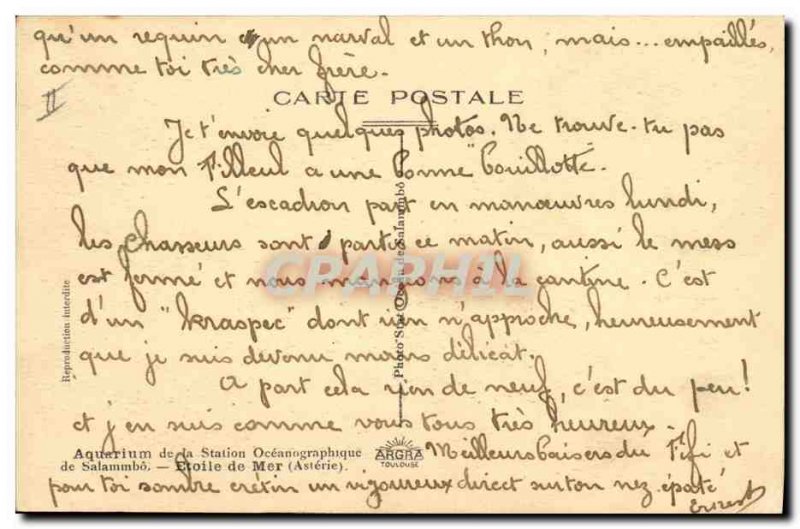 qu'un requin et un narval et un thon, mais... empaillés,
comme toi très cher frère.
II
CARTE POSTALE
Je t'envoie quelques photos. Ne trouve-tu pas
que mon filleul a une bonne "bouillotte".
L'escadron part en manœuvres lundi,
les chasseurs sont partis ce matin, aussi le mess
est fermé et nous mangeons à la cantine. C'est
d'un "kraspec" dont rien n'approche, heureusement
que je suis devenu moins délicat.
A part cela rien de neuf, c'est du peu!
et j'en suis comme vous tous très heureux.
Meilleurs baisers du Fifi et
pour toi sombre crétin un vigoureux direct sur ton nez épaté
Ernest
Reproduction interdite
Photo Station Océan de Salammbô
Aquarium de la Station Océanographique
de Salammbô. — Etoile de Mer (Astérie).
ARGRA
TOULOUSE
CPAPHIL